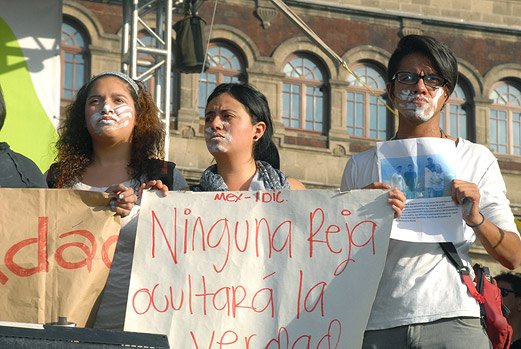 MEX-IDIC.
Ninguna Reja
ocultará la
verdad